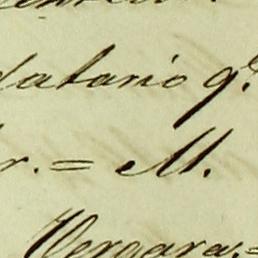 datario q.e
r. = M.
Vergara. =